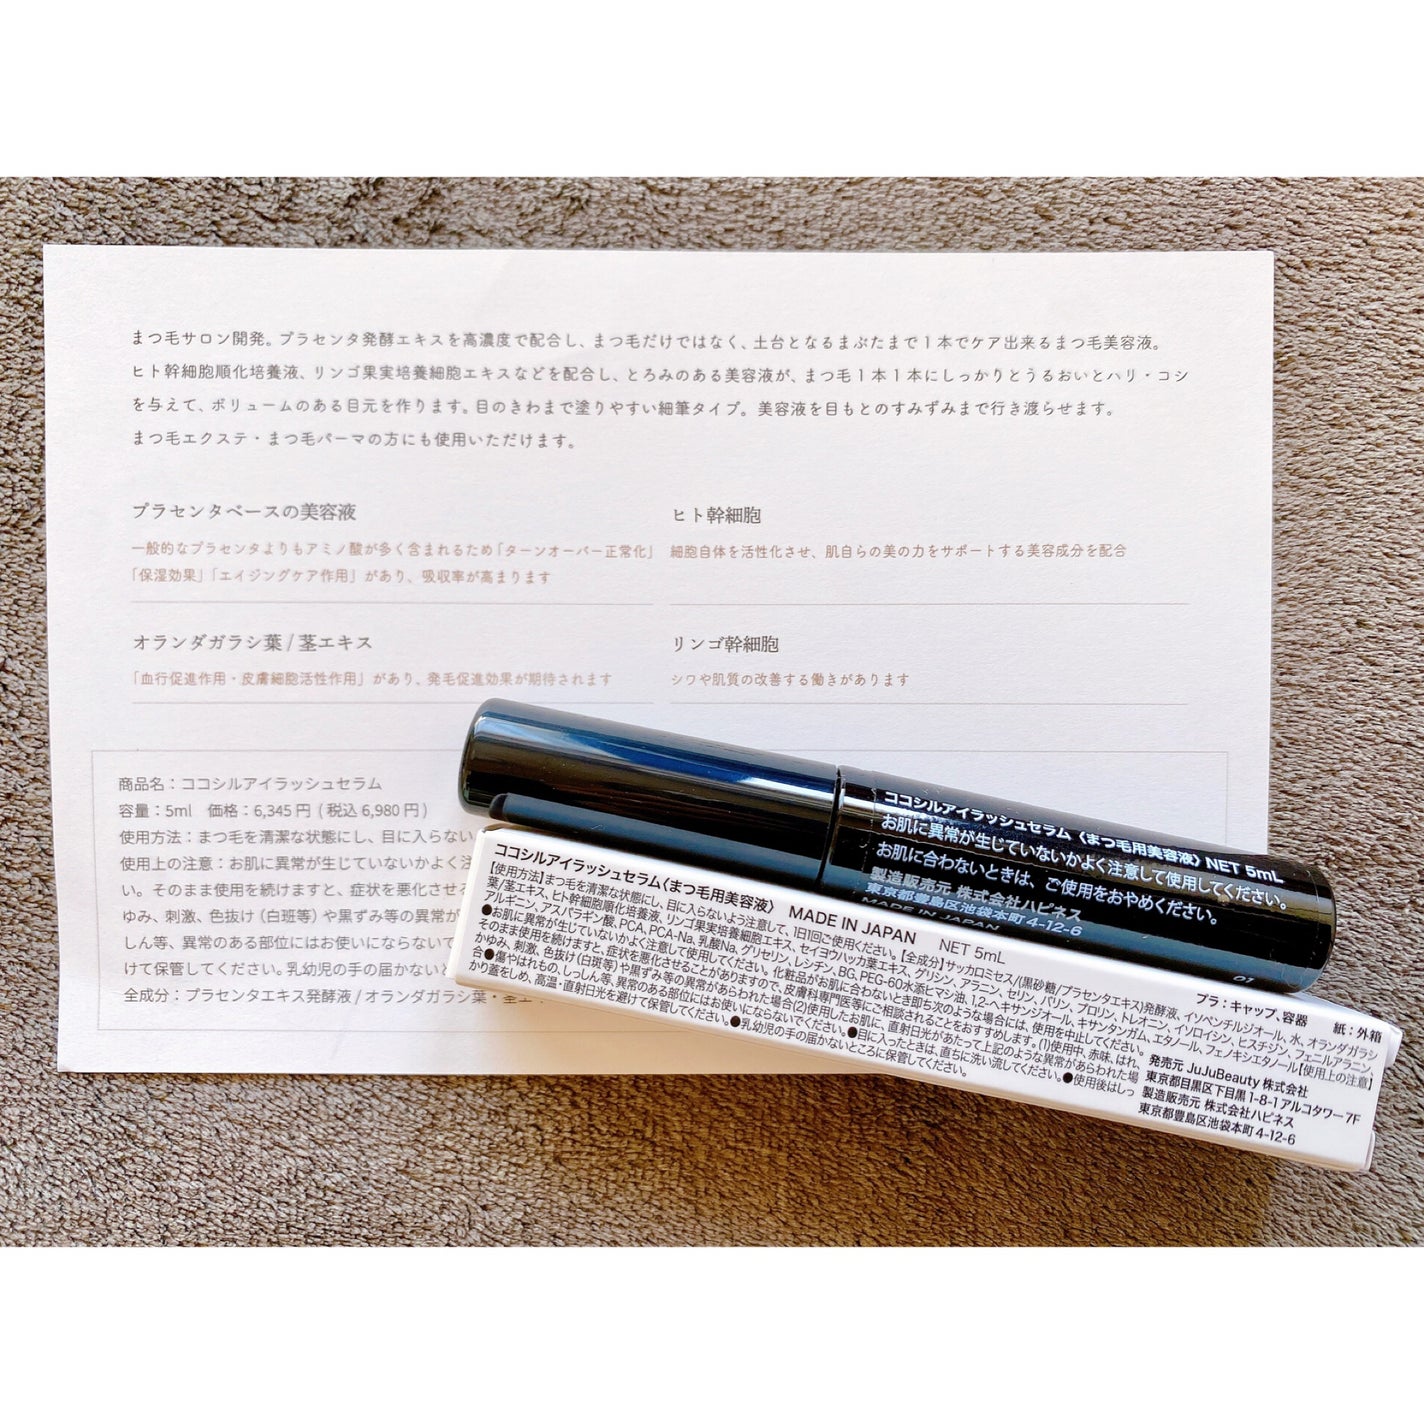 まつ毛サロン開発。プラセンタ発酵エキスを高濃度で配合し、まつ毛だけではなく、土台となるまぶたまで1本でケア出来るまつ毛美容液。
ヒト幹細胞順化培養液、リンゴ果実培養細胞エキスなどを配合し、とろみのある美容液が、まつ毛1本1本にしっかりとうるおいとハリ・コシ
を与えて、ボリュームのある目元を作ります。目のきわまで塗りやすい細筆タイプ。美容液を目もとのすみずみまで行き渡らせます。
まつ毛エクステ・まつ毛パーマの方にも使用いただけます。
プラセンタベースの美容液
一般的なプラセンタよりもアミノ酸が多く含まれるため「ターンオーバー正常化」
「保湿効果」「エイジングケア作用」があり、吸収率が高まります
ヒト幹細胞
細胞自体を活性化させ、肌自らの美の力をサポートする美容成分を配合
オランダガラシ葉/茎エキス
「血行促進作用・皮膚細胞活性作用」があり、発毛促進効果が期待されます
リンゴ幹細胞
シワや肌質の改善する働きがあります
商品名：ココシルアイラッシュセラム
容量：5ml 価格：6,345円（税込6,980円）
使用方法：まつ毛を清潔な状態にし、目に入らない
使用上の注意：お肌に異常が生じていないかよく注
い。そのまま使用を続けますと、症状を悪化させる
ゆみ、刺激、色抜け（白斑等）や黒ずみ等の異常が
しん等、異常のある部位にはお使いにならないで
けて保管してください。乳幼児の手の届かないと
全成分：プラセンタエキス発酵液/オランダガラシ葉・茎エキ
ココシルアイラッシュセラム〈まつ毛用美容液〉NET 5mL
お肌に異常が生じていないかよく注意して使用してください。
お肌に合わないときは、ご使用をおやめください。
製造販売元 株式会社ハピネス
東京都豊島区池袋本町4-12-6
MADE IN JAPAN
01
ココシルアイラッシュセラム〈まつ毛用美容液〉 MADE IN JAPAN NET 5mL
プラ：キャップ、容器 紙：外箱
【使用方法】まつ毛を清潔な状態にし、目に入らないよう注意して、1日1回ご使用ください。【全成分】サッカロミセス/(黒砂糖/プラセンタエキス)発酵液、イソペンチルジオール、水、オランダガラシ
葉/茎エキス、ヒト幹細胞順化培養液、リンゴ果実培養細胞エキス、セイヨウハッカ葉エキス、グリシン、アラニン、セリン、バリン、プロリン、トレオニン、イソロイシン、ヒスチジン、フェニルアラニン、
アルギニン、アスパラギン酸、PCA、PCA-Na、乳酸Na、グリセリン、レシチン、BG、PEG-60水添ヒマシ油、1,2-ヘキサンジオール、キサンタンガム、エタノール、フェノキシエタノール【使用上の注意】
●お肌に異常が生じていないかよく注意して使用してください。化粧品がお肌に合わないとき即ち次のような場合には、使用を中止してください。
そのまま使用を続けますと、症状を悪化させることがありますので、皮膚科専門医等にご相談されることをおすすめします。(1)使用中、赤味、はれ、
かゆみ、刺激、色抜け(白斑等)や黒ずみ等の異常があらわれた場合(2)使用したお肌に、直射日光があたって上記のような異常があらわれた場
合●傷やはれもの、しっしん等、異常のある部位にはお使いにならないでください。●目に入ったときは、直ちに洗い流してください。●使用後はしっ
かり蓋をしめ、高温・直射日光を避けて保管してください。●乳幼児の手の届かないところに保管してください。
発売元 JuJuBeauty 株式会社
東京都目黒区下目黒1-8-1 アルコタワー7F
製造販売元 株式会社ハピネス
東京都豊島区池袋本町4-12-6